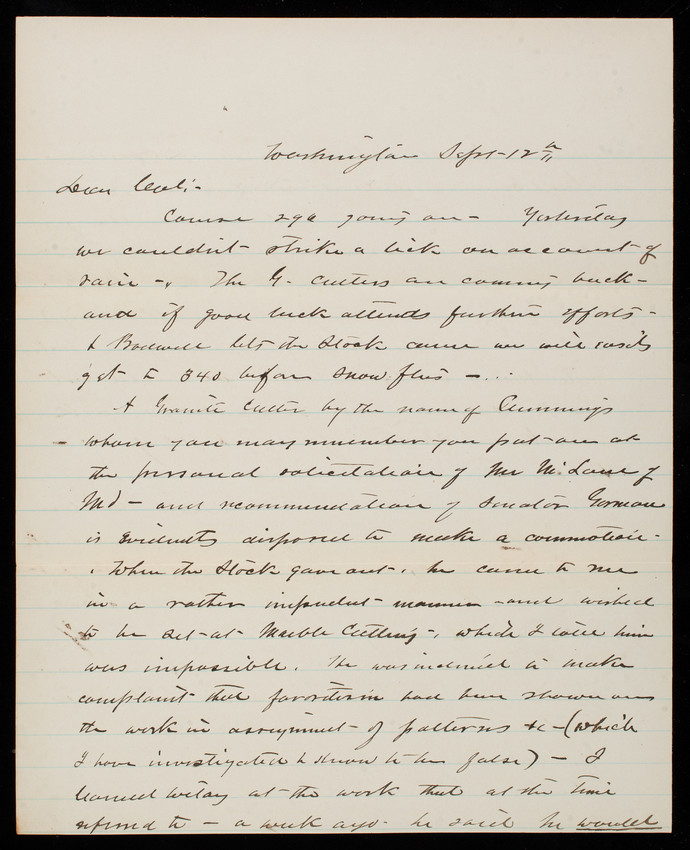 Washington Sept-12th
Dear Col:-
Course 296 going on - Yesterday
we couldn't strike a lick on account of
rain -. The G. Cutters are coming back -
and if good luck attends further efforts -
& Bodwell lets the Stock come we will easily
get to 340 before snow flies - . .
A Granite Cutter by the name of Cummings
whom you may remember you put on at
the personal solicitation of Mr McLane of
Md - and recommendation of Senator Gorman
is evidently disposed to make a commotion -
. When the Stock gave out. he came to me
in a rather impudent manner - and wished
to be set at Marble Cutting -. which I told him
was impossible. He was inclined to make
complaint that favoritism had been shown on
the work in assignment of patterns &c - (which
I have investigated & know to be false) - I
learned today at the work that at the time
referred to - a week ago - he said he would